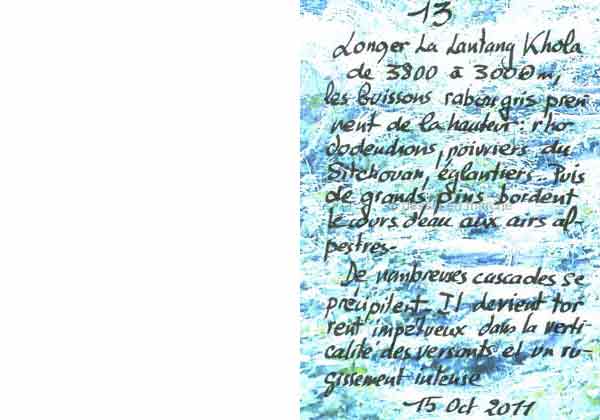 13
Longer La Lantang Khola
de 3800 à 3000m,
les buissons rabougris pren
nent de la hauteur : rho-
dodendrons, poivriers du
Sitchouan, églantiers. Puis
de grands pins bordent
le cours d'eau aux airs al
pestres.
De nombreuses cascades se
précipitent. Il devient tor
rent impétueux dans la verti
calité des versants et un ru-
gissement intense
15 Oct 2011